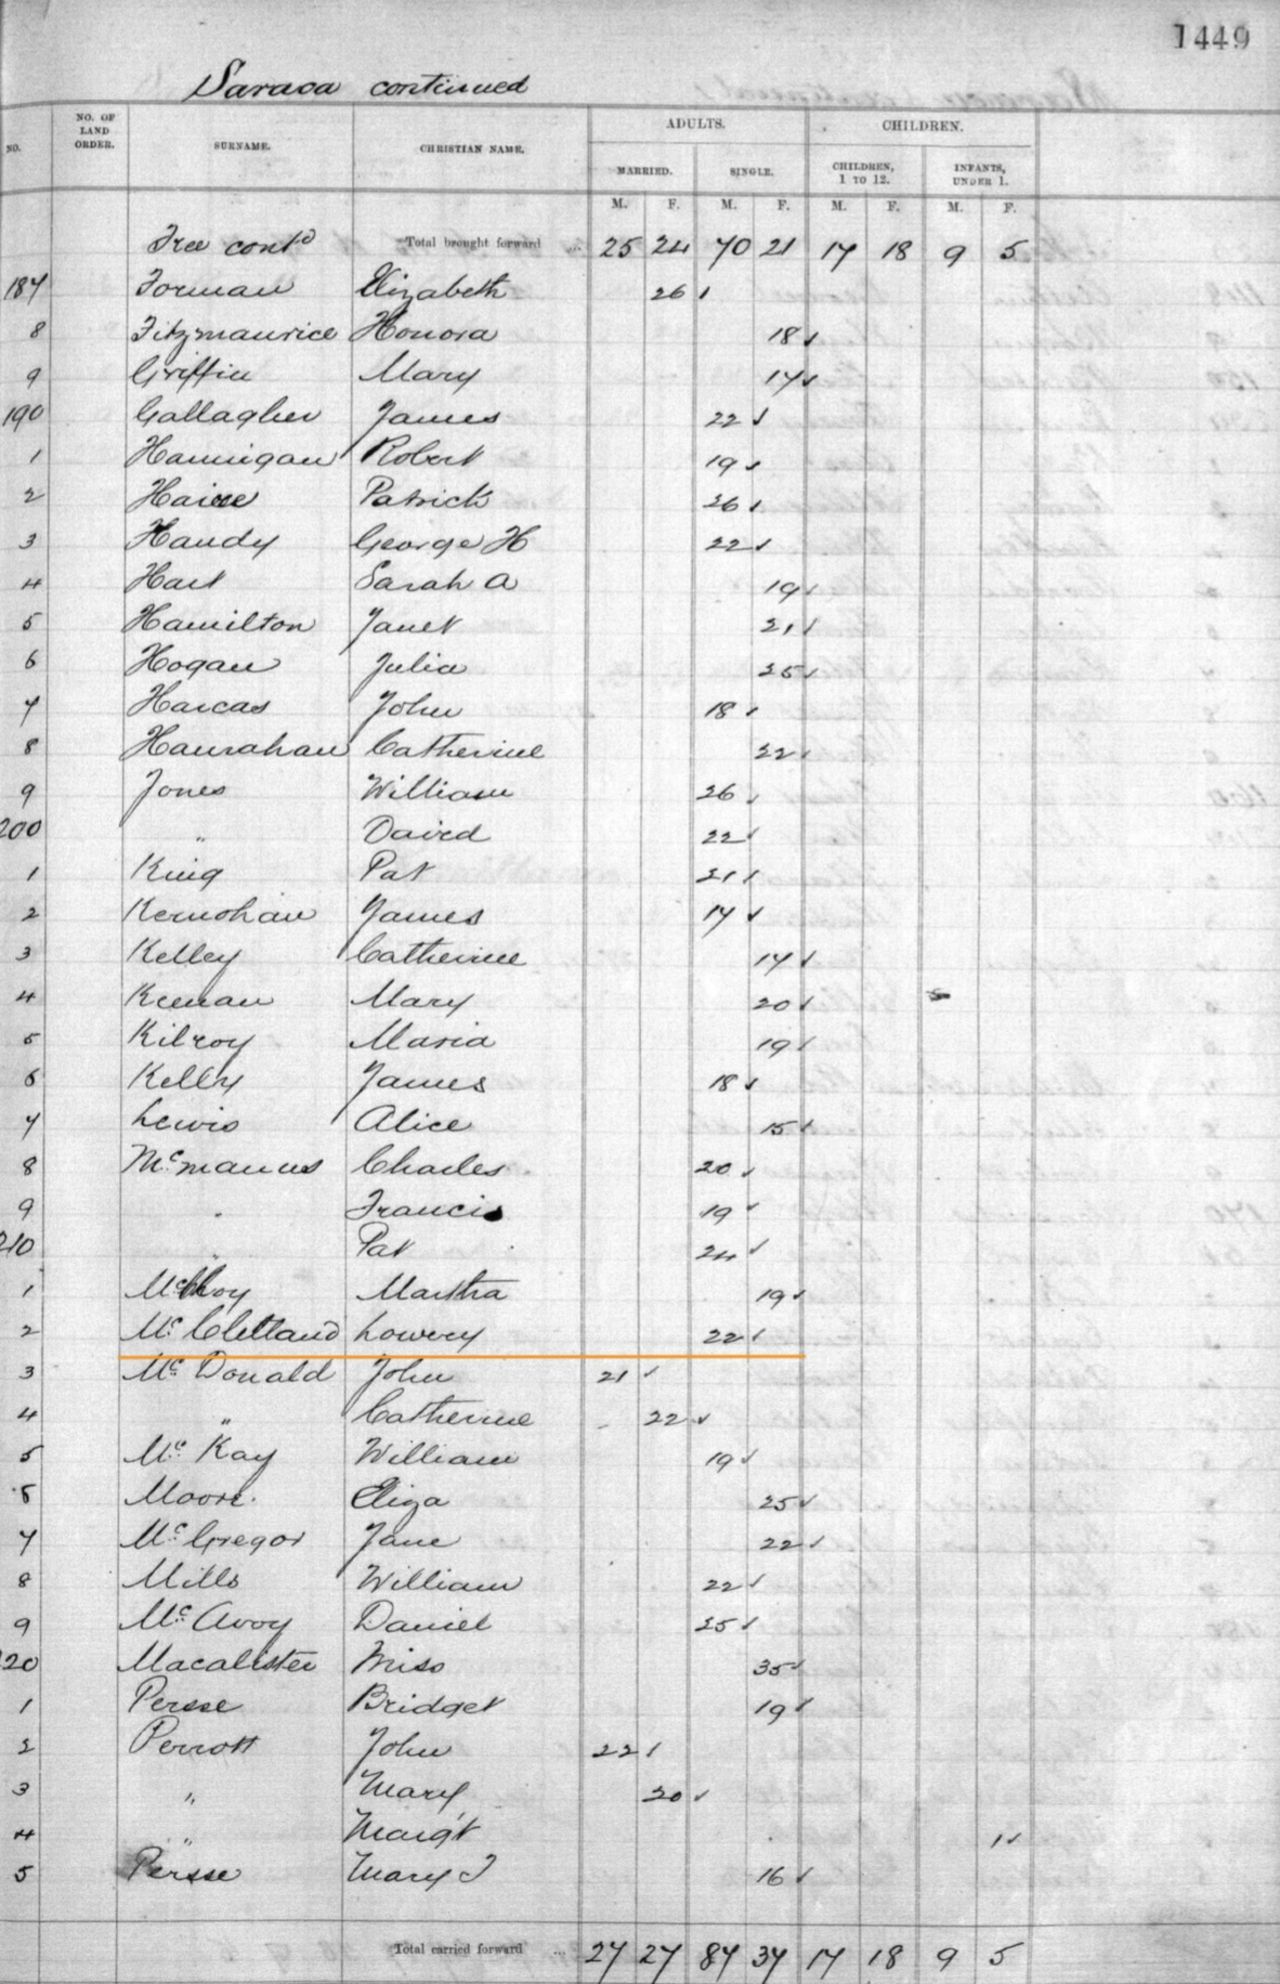 1449
Saraca continued
NO. NO. OF LAND ORDER. SURNAME. CHRISTIAN NAME. ADULTS. CHILDREN.
MARRIED. SINGLE. CHILDREN, 1 TO 12. INFANTS, UNDER 1.
M. F. M. F. M. F. M. F.
Free contd Total brought forward ... 25 24 70 21 17 18 9 5
187 Forman Elizabeth 26
8 Fitzmaurice Honora 18
9 Griffin Mary 17
190 Gallagher James 22
1 Hannigan Robert 19
2 Patrick 26
3 Handy George H 22
4 Hart Sarah A 19
5 Hamilton Janet 21
6 Hogan Julia 25
7 Harcas John 18
8 Hanrahan Catherine 22
9 Jones William 26
200 " David 22
1 King Pat 21
2 Kernohan James 17
3 Kelley Catherine 17
4 Keenan Mary 20
5 Kilroy Maria 19
6 Kelly James 18
7 Lewis Alice 15
8 McManus Charles 20
9 " Francis 19
210 " Pat 24
1 Martha 19
2 McClelland Lowery 22
3 McDonald John 21
4 " Catherine 22
5 McKay William 19
6 Moore Eliza 25
7 McGregor Jane 22
8 Mills William 22
9 McAvoy Daniel 25
220 Macalister Miss 35
1 Persse Bridget 19
2 Perrott John 22
3 " Mary 20
4 " Margt 1
5 Persse Mary J 16
Total carried forward ... 27 27 87 37 17 18 9 5